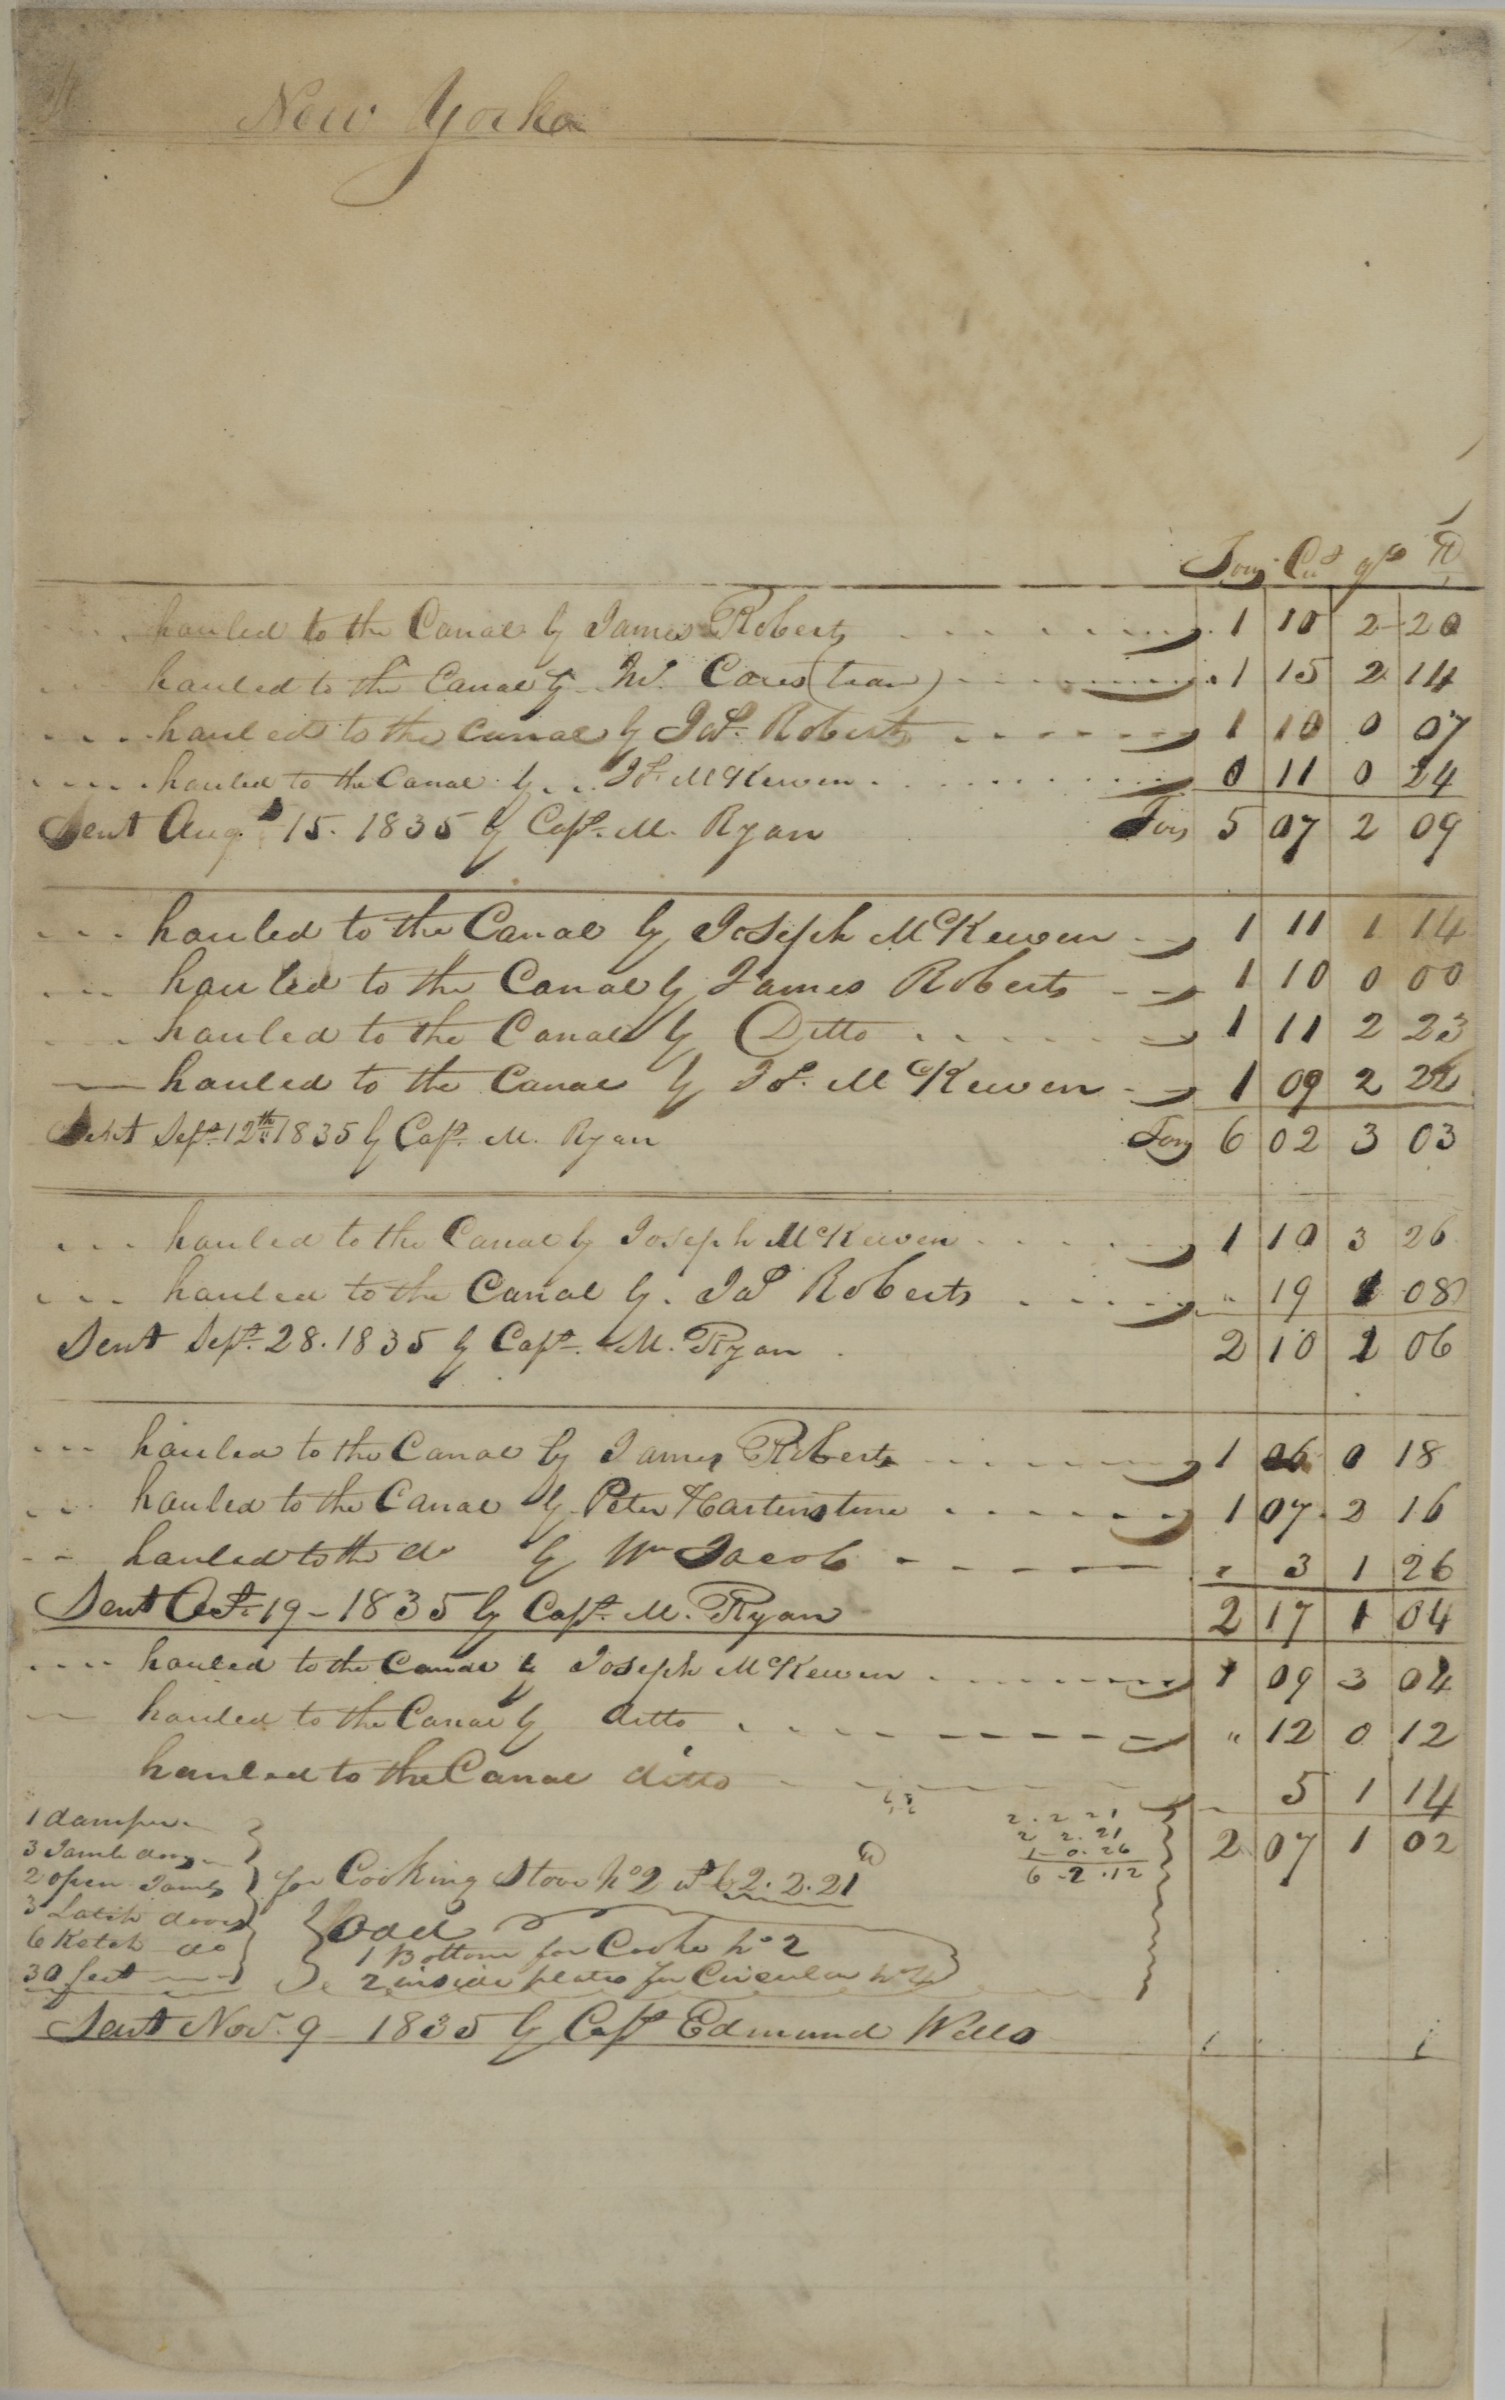 New York
Tons Cwt qrs lb
hauled to the Canal by James Roberts 1 10 2 20
hauled to the Canal by W. Cares (team) 1 15 2 14
hauled to the Canal by Jas. Roberts 1 10 0 07
hauled to the Canal by Js. McKewen 0 11 0 24
Sent Augt 15. 1835 by Capt. M. Ryan Tons 5 07 2 09
hauled to the Canal by Joseph McKewen 1 11 1 14
hauled to the Canal by James Roberts 1 10 0 00
hauled to the Canal by Ditto 1 11 2 23
hauled to the Canal by Js. McKewen 1 09 2 22
Sent Sept. 12th 1835 by Capt. M. Ryan Tons 6 02 3 03
hauled to the Canal by Joseph McKewen 1 10 3 26
hauled to the Canal by Jas Roberts " 19 1 08
Sent Sept. 28. 1835 by Capt. M. Ryan 2 10 1 06
hauled to the Canal by James Roberts 1 06 0 18
hauled to the Canal by Peter Hartenstine 1 07 2 16
hauled to the do by Wm Jacob " 3 1 26
Sent Oct. 19 - 1835 by Capt. M. Ryan 2 17 1 04
hauled to the Canal by Joseph McKewen 1 09 3 04
hauled to the Canal by ditto " 12 0 12
hauled to the Canal ditto 5 1 14
2 07 1 02
1 damper
3 Jamb
2 open Jambs
3 Latch doors
6 Ketch do
30 feet
for Cooking Stove No 2 2.2.21
2. 2 21
2 2. 21
1 - 0. 26
6 - 2 . 12
Odd
1 Bottom for Cooke No 2
2 inside plates for Circular No 4
Sent Nov. 9 - 1835 by Capt Edmund Wells